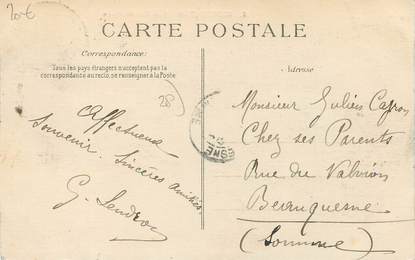 20€
CARTE POSTALE
Correspondance:
Tous les pays étrangers n'acceptent pas la
correspondance au recto, se renseigner à la Poste
Adresse
28
Affectueux
souvenir. Sincères amitiés.
G.
Monsieur Julien
Chez ses Parents
Rue du
Beauquesne
(Somme)